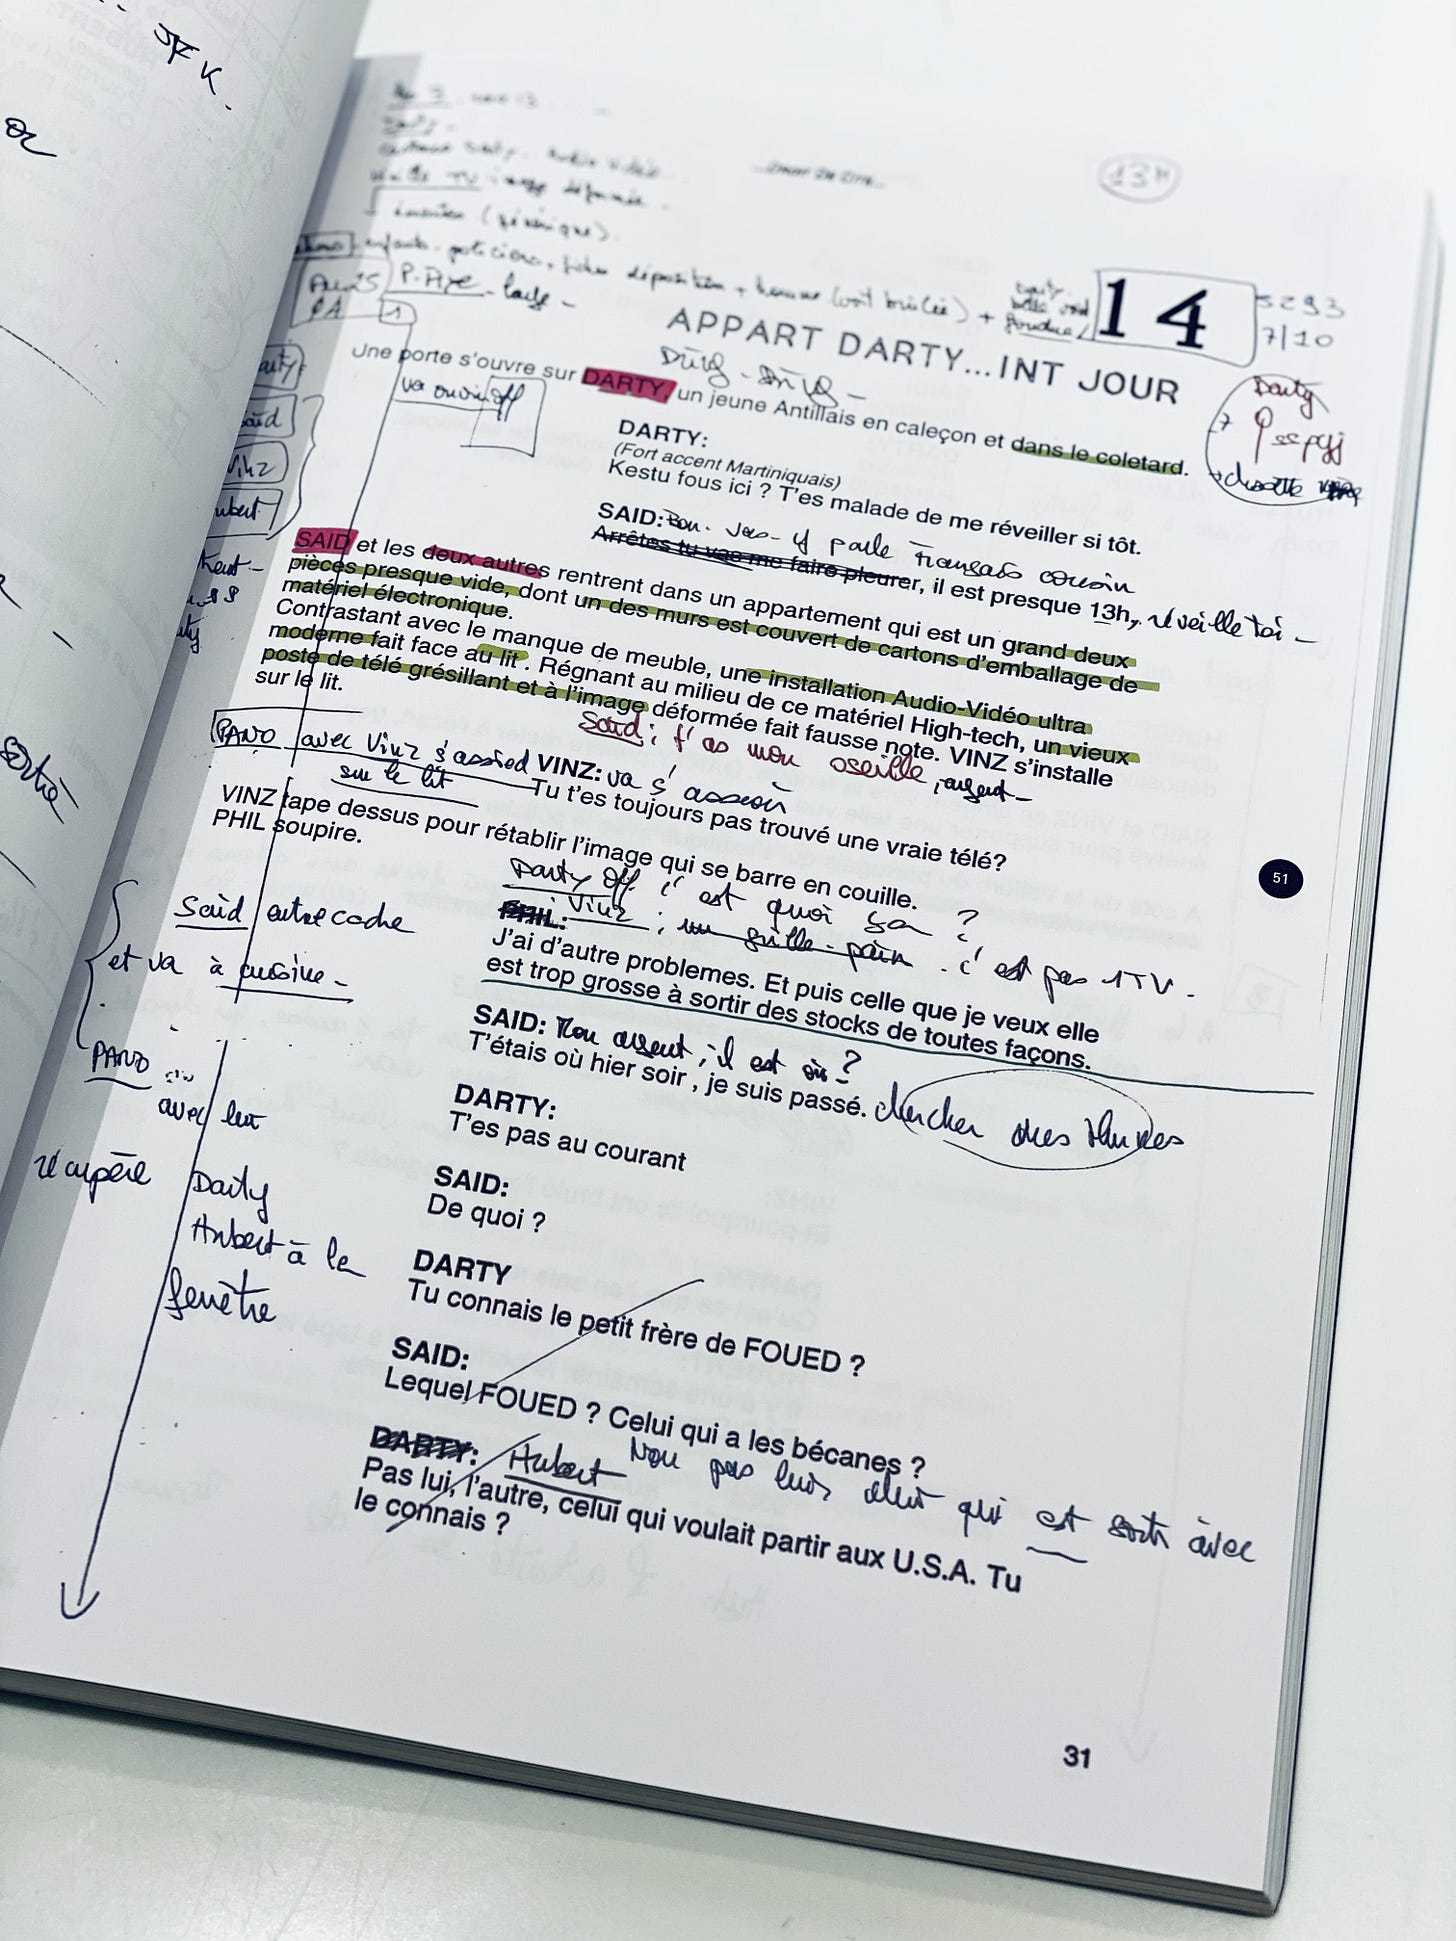 JFK.
or
13H
image déformée
(générique).
enfants - policiers, fiches déposition + homme (voit brûlée) +
P.
14
5293
7/10
1
APPART DARTY...INT JOUR
Dring - Dring -
Une porte s'ouvre sur DARTY, un jeune Antillais en caleçon et dans le coletard.
va ouvrir off
Darty
DARTY:
(Fort accent Martiniquais)
Kestu fous ici ? T'es malade de me réveiller si tôt.
SAID: Bon. Vas-y parle Français cousin
Arrêtes tu vas me faire pleurer, il est presque 13h, réveille toi -
Said
Vinz
Hubert
SAID et les deux autres rentrent dans un appartement qui est un grand deux
pièces presque vide, dont un des murs est couvert de cartons d'emballage de
matériel électronique.
Contrastant avec le manque de meuble, une installation Audio-Vidéo ultra
moderne fait face au lit . Régnant au milieu de ce matériel High-tech, un vieux
poste de télé grésillant et à l'image déformée fait fausse note. VINZ s'installe
sur le lit.
Said : t'as mon oseille, argent -
PANO avec Vinz s'assied sur le lit
VINZ: va s'asseoir
Tu t'es toujours pas trouvé une vraie télé?
VINZ tape dessus pour rétablir l'image qui se barre en couille.
PHIL soupire.
Darty Off. c'est quoi sa ?
PHIL: Vinz : un grille-pain. c'est pas 1 TV.
J'ai d'autre problemes. Et puis celle que je veux elle
est trop grosse à sortir des stocks de toutes façons.
51
Said entre cache
et va à cuisine -
SAID: Mon argent, il est où ?
T'étais où hier soir , je suis passé. chercher mes thunes
PANO
avec lui
récupère Darty
Hubert à la
fenêtre
DARTY:
T'es pas au courant
SAID:
De quoi ?
DARTY
Tu connais le petit frère de FOUED ?
SAID:
Lequel FOUED ? Celui qui a les bécanes ?
DARTY: Hubert Non pas lui, celui qui est sorti avec
Pas lui, l'autre, celui qui voulait partir aux U.S.A. Tu
le connais ?
31